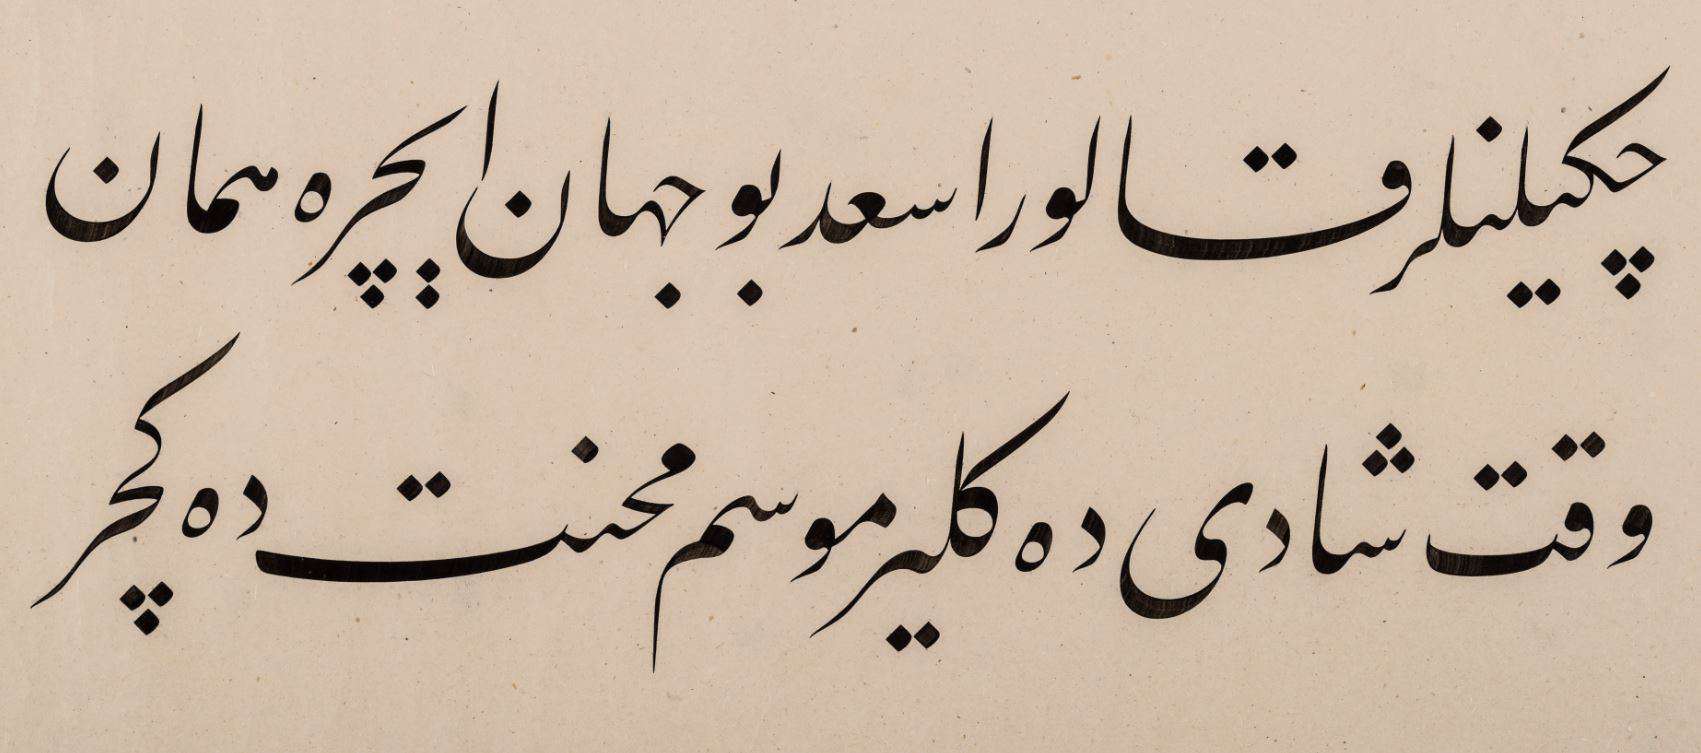 چكیلنلر قالور اسعد بو جهان ایچره همان
وقت شادی ده كلیر موسم محنت ده كچر